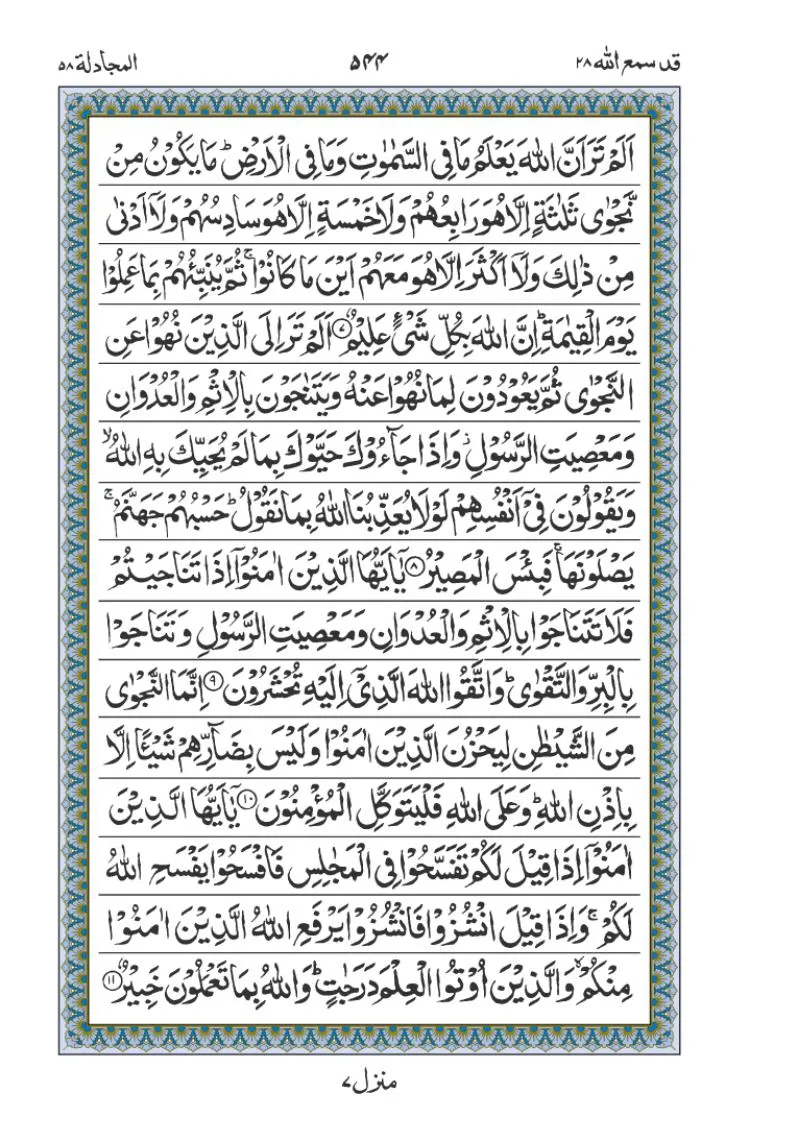 قد سمع الله ٢٨
٥٤٤
المجادلة ٥٨
اَلَمْ تَرَ اَنَّ اللّٰهَ يَعْلَمُ مَا فِي السَّمٰوٰتِ وَمَا فِي الْاَرْضِ ؕ مَا يَكُوْنُ مِنْ
نَّجْوٰى ثَلٰثَةٍ اِلَّا هُوَ رَابِعُهُمْ وَلَا خَمْسَةٍ اِلَّا هُوَ سَادِسُهُمْ وَلَاۤ اَدْنٰى
مِنْ ذٰلِكَ وَلَاۤ اَكْثَرَ اِلَّا هُوَ مَعَهُمْ اَيْنَ مَا كَانُوْا ۚ ثُمَّ يُنَبِّئُهُمْ بِمَا عَمِلُوْا
يَوْمَ الْقِيٰمَةِ ؕ اِنَّ اللّٰهَ بِكُلِّ شَيْءٍ عَلِيْمٌ ﴿٧﴾ اَلَمْ تَرَ اِلَى الَّذِيْنَ نُهُوْا عَنِ
النَّجْوٰى ثُمَّ يَعُوْدُوْنَ لِمَا نُهُوْا عَنْهُ وَيَتَنٰجَوْنَ بِالْاِثْمِ وَالْعُدْوَانِ
وَمَعْصِيَتِ الرَّسُوْلِ ؗ وَاِذَا جَآءُوْكَ حَيَّوْكَ بِمَا لَمْ يُحَيِّكَ بِهِ اللّٰهُ ۙ
وَيَقُوْلُوْنَ فِيْۤ اَنْفُسِهِمْ لَوْلَا يُعَذِّبُنَا اللّٰهُ بِمَا نَقُوْلُ ؕ حَسْبُهُمْ جَهَنَّمُ ۚ
يَصْلَوْنَهَا ۚ فَبِئْسَ الْمَصِيْرُ ﴿٨﴾ يٰۤاَيُّهَا الَّذِيْنَ اٰمَنُوْۤا اِذَا تَنَاجَيْتُمْ
فَلَا تَتَنَاجَوْا بِالْاِثْمِ وَالْعُدْوَانِ وَمَعْصِيَتِ الرَّسُوْلِ وَتَنَاجَوْا
بِالْبِرِّ وَالتَّقْوٰى ؕ وَاتَّقُوا اللّٰهَ الَّذِيْۤ اِلَيْهِ تُحْشَرُوْنَ ﴿٩﴾ اِنَّمَا النَّجْوٰى
مِنَ الشَّيْطٰنِ لِيَحْزُنَ الَّذِيْنَ اٰمَنُوْا وَلَيْسَ بِضَآرِّهِمْ شَيْـًٔا اِلَّا
بِاِذْنِ اللّٰهِ ؕ وَعَلَى اللّٰهِ فَلْيَتَوَكَّلِ الْمُؤْمِنُوْنَ ﴿١٠﴾ يٰۤاَيُّهَا الَّذِيْنَ
اٰمَنُوْۤا اِذَا قِيْلَ لَكُمْ تَفَسَّحُوْا فِي الْمَجٰلِسِ فَافْسَحُوْا يَفْسَحِ اللّٰهُ
لَكُمْ ۚ وَاِذَا قِيْلَ انْشُزُوْا فَانْشُزُوْا يَرْفَعِ اللّٰهُ الَّذِيْنَ اٰمَنُوْا
مِنْكُمْ ۙ وَالَّذِيْنَ اُوْتُوا الْعِلْمَ دَرَجٰتٍ ؕ وَاللّٰهُ بِمَا تَعْمَلُوْنَ خَبِيْرٌ ﴿١١﴾
منزل ٧